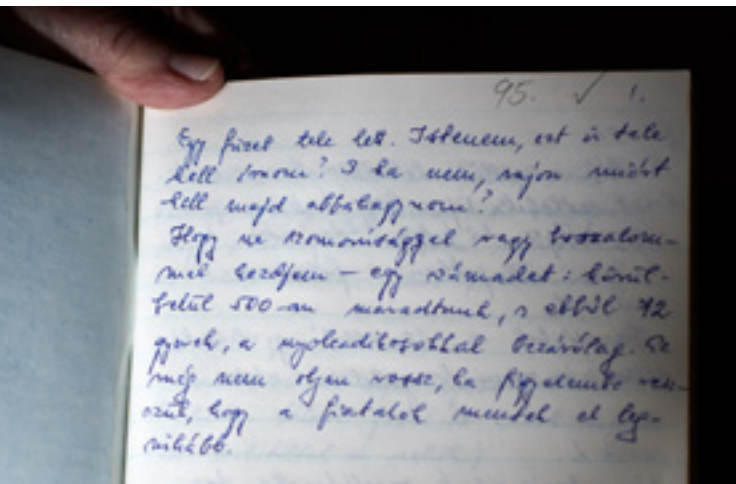 95. ✓ 1.
Egy füzet tele lett. Istenem, ezt is tele
kell írnom? S ha nem, vajon miért
kell majd abbahagynom?
Hogy ne szomorúsággal vagy
kezdjem – egy számadat: körül-
belül 500-an maradtunk, s ebből 72
gyerek, a nyolcadikosokkal bezárólag. Ez
még nem olyan rossz, ha figyelembe vesz-
szük, hogy a fiatalok mentek el leg-
inkább.